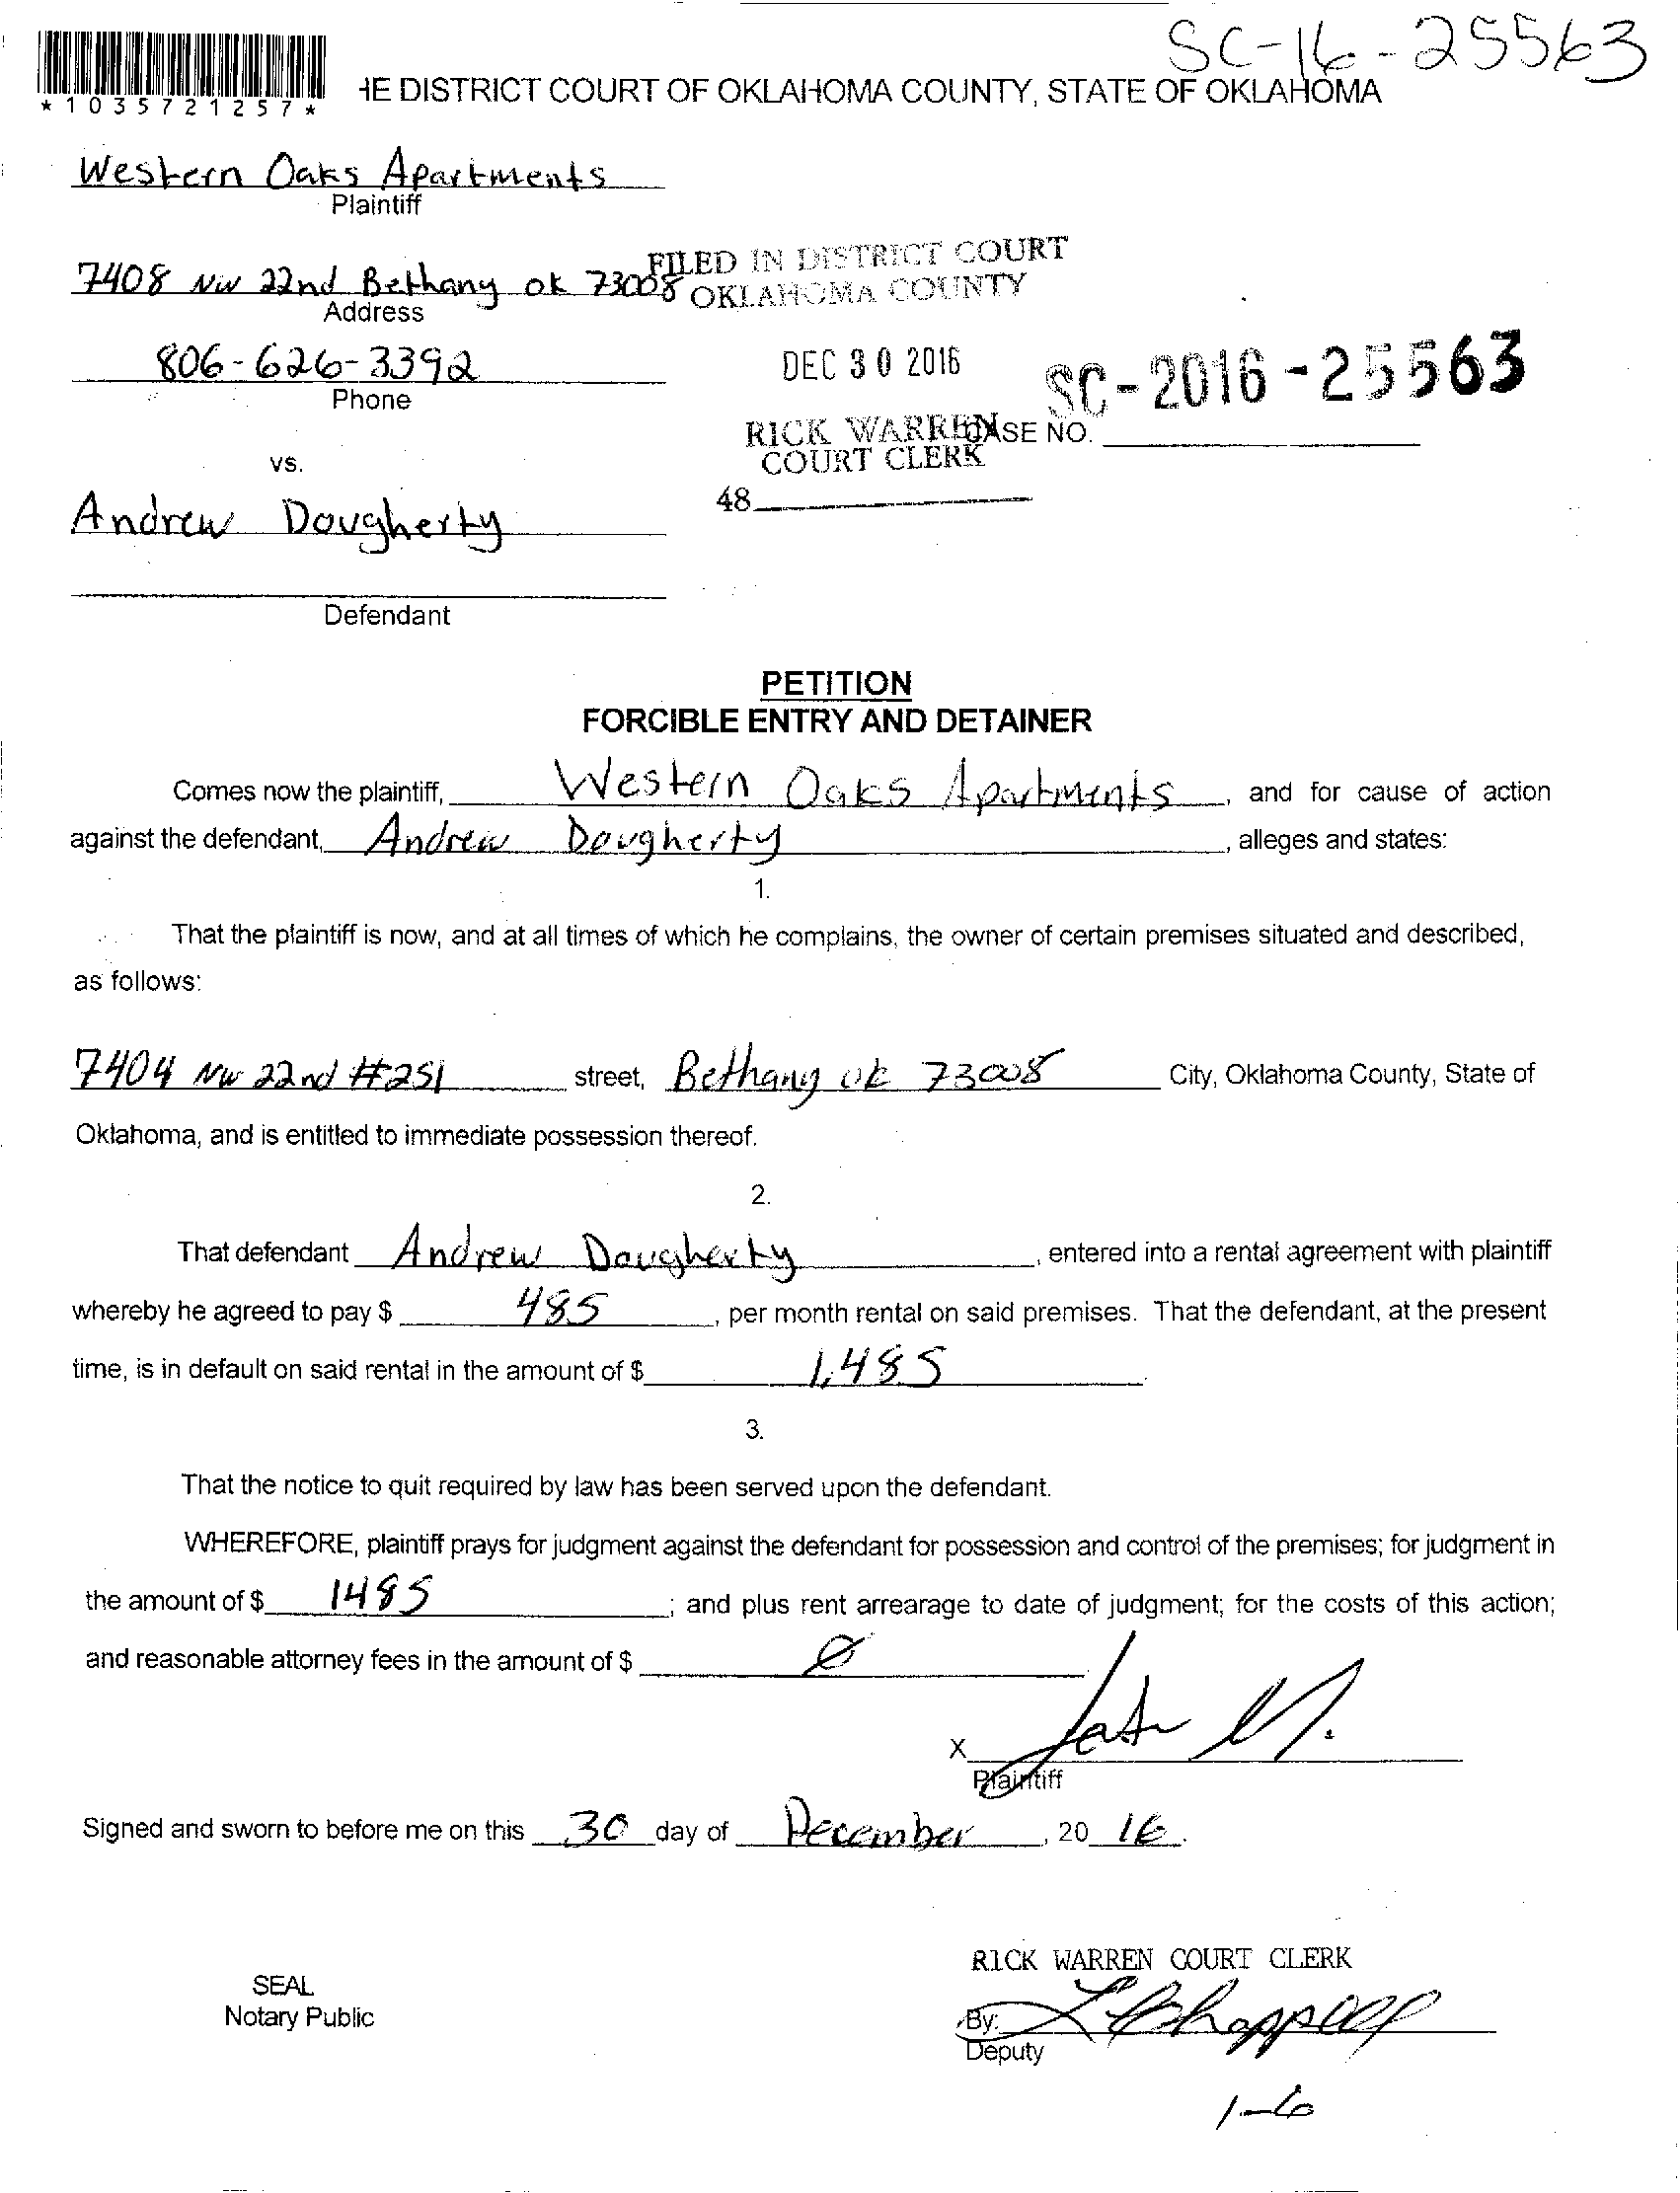 SC-16-25563
*1035721257*
HE DISTRICT COURT OF OKLAHOMA COUNTY, STATE OF OKLAHOMA
Western Oaks Apartments
Plaintiff
7408 NW 22nd Bethany ok 73008
Address
FILED IN DISTRICT COURT
OKLAHOMA COUNTY
806-626-3392
Phone
DEC 30 2016
SC-2016-25563
RICK WARREN
COURT CLERK
CASE NO.
vs.
48
Andrew Dougherty
Defendant
PETITION
FORCIBLE ENTRY AND DETAINER
Comes now the plaintiff, Western Oaks Apartments, and for cause of action
against the defendant, Andrew Dougherty, alleges and states:
1.
That the plaintiff is now, and at all times of which he complains, the owner of certain premises situated and described,
as follows:
7404 NW 22nd #251 street, Bethany ok 73008 City, Oklahoma County, State of
Oklahoma, and is entitled to immediate possession thereof.
2.
That defendant Andrew Dougherty, entered into a rental agreement with plaintiff
whereby he agreed to pay $ 485, per month rental on said premises. That the defendant, at the present
time, is in default on said rental in the amount of $ 1,485.
3.
That the notice to quit required by law has been served upon the defendant.
WHEREFORE, plaintiff prays for judgment against the defendant for possession and control of the premises; for judgment in
the amount of $ 1485; and plus rent arrearage to date of judgment; for the costs of this action;
and reasonable attorney fees in the amount of $ Ø
X
Plaintiff
Signed and sworn to before me on this 30 day of December, 20 16.
RICK WARREN COURT CLERK
SEAL
Notary Public
By: L Chappell
Deputy
1-6